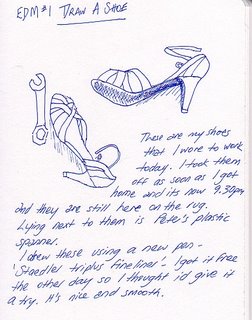 EDM#1 DRAW A SHOE
These are my shoes
that I wore to work
today. I took them
off as soon as I got
home and its now 9.30pm
and they are still here on the rug.
Lying next to them is Pete's plastic
spanner.
I drew these using a new pen -
'Staedler triplus fineliner'- I got it free
the other day so I thought id give it
a try. It's nice and smooth.